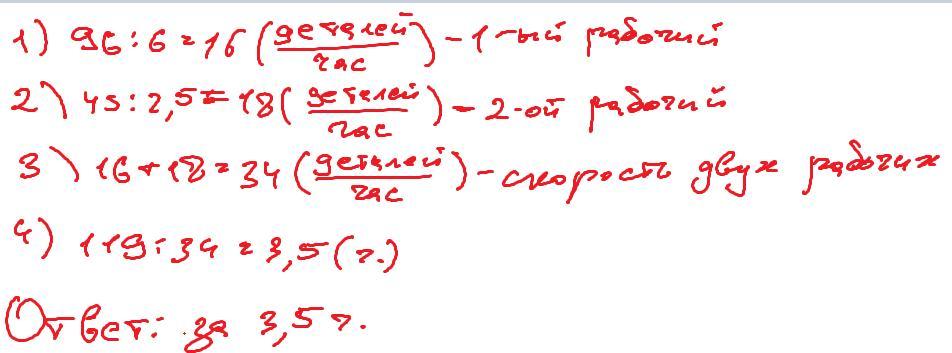 1) 96 : 6 = 16 (деталей/час) - 1-ый рабочий
2) 45 : 2,5 = 18 (деталей/час) - 2-ой рабочий
3) 16 + 18 = 34 (деталей/час) - скорость двух рабочих
4) 119 : 34 = 3,5 (ч.)
Ответ: за 3,5 ч.